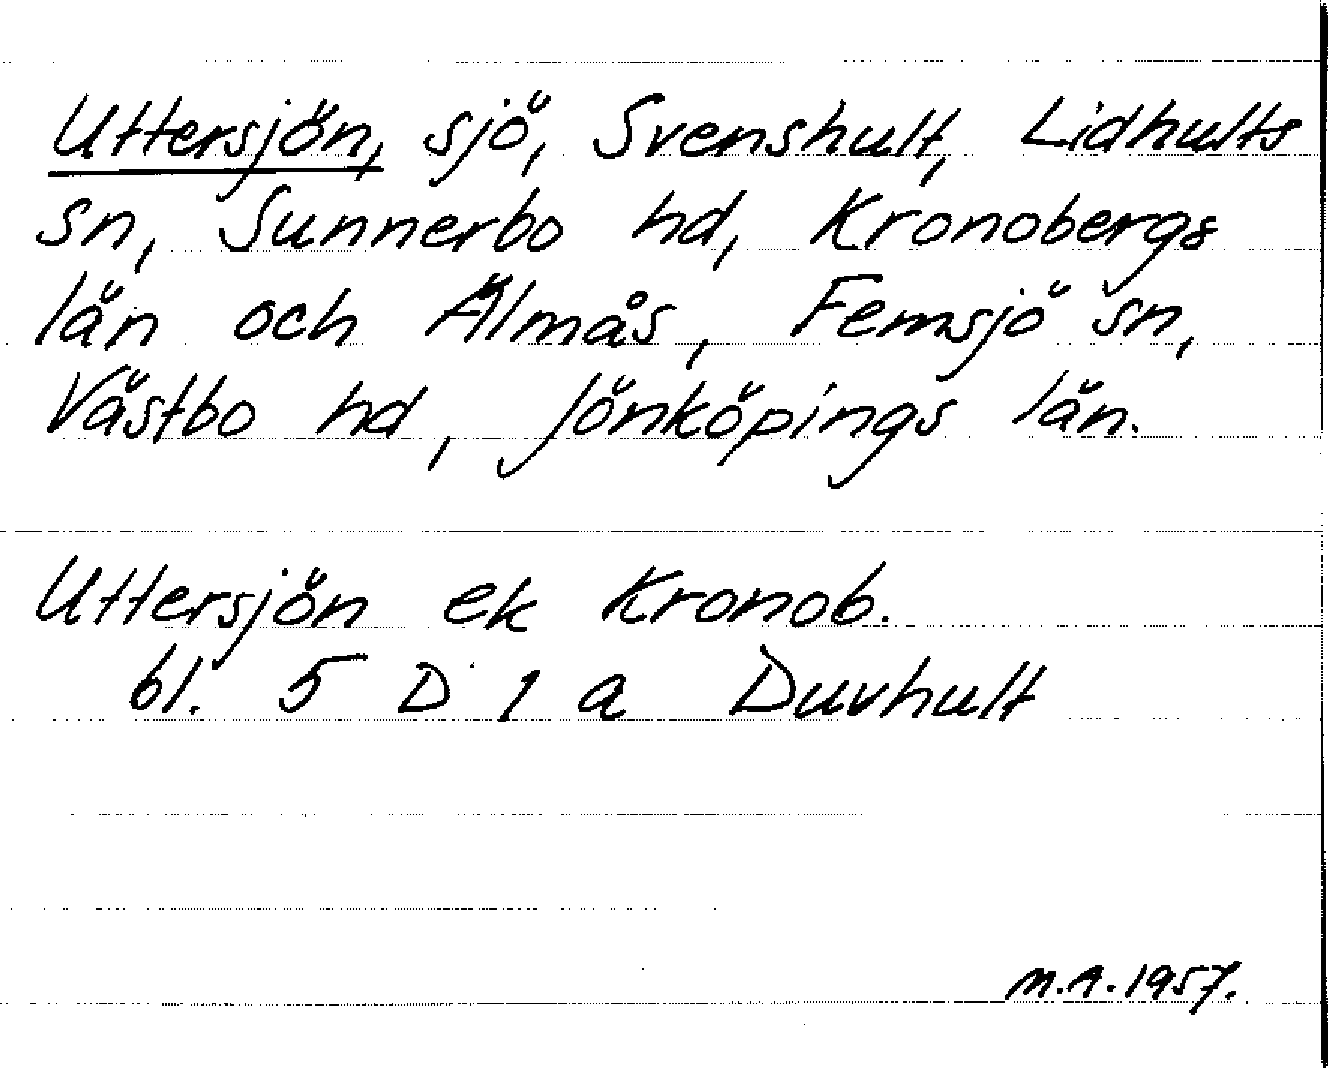 Uttersjön, sjö, Svenshult, Lidhults
sn, Sunnerbo hd, Kronobergs
län och Älmås, Femsjö sn,
Västbo hd, Jönköpings län.
Uttersjön ek Kronob.
bl. 5 D 1 a Duvhult
M.A. 1957.